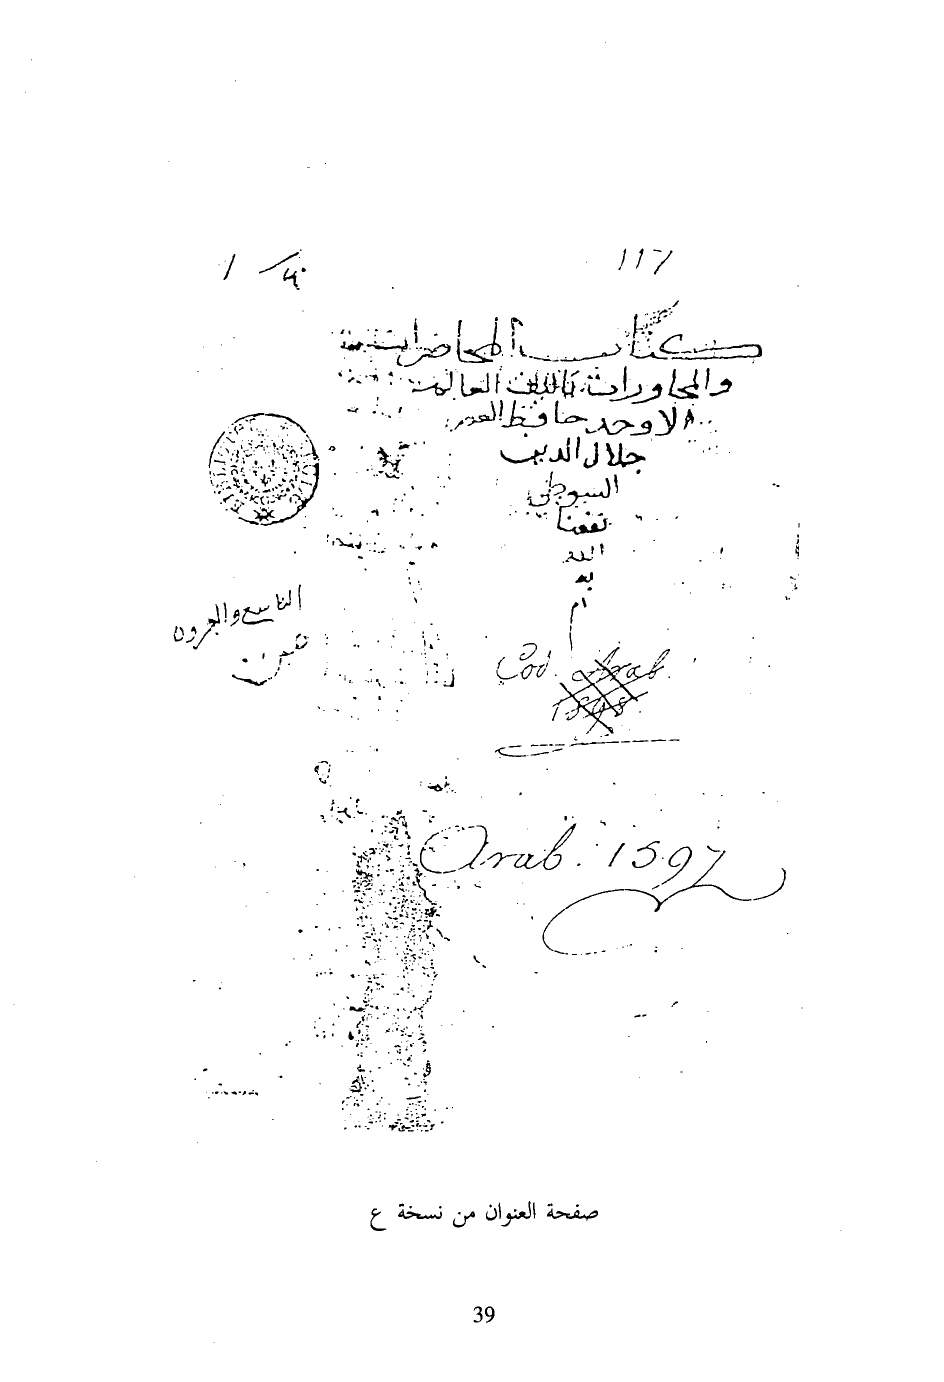 117
1
كتاب المحاضرات
والمحاورات تاليف العالم
الاوحد حافظ العصر
جلال الدين
السيوطي
نفعنا
الله
به
ام
التاسع
Cod. Arab.
Arab. 1597
صفحة العنوان من نسخة ع
39